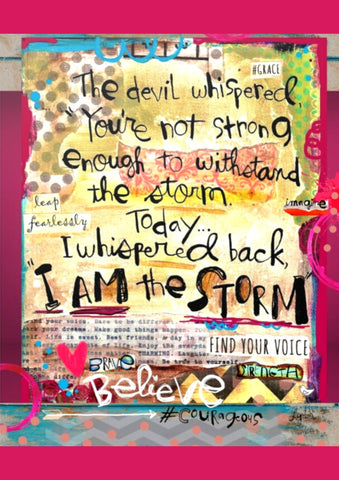 #GRACE
The devil whispered,
"You're not strong
enough to withstand
the storm.
leap
fearlessly
imagine
Today...
I whispered back,
"I AM the STORM"
find your voice. Dare to be differe
back your dreams. Make good things happen.
elf. Life is sweet. Best friends. A day in my
Enjoy the everyday
LAUGHING. Laughter
be true to yourself
FIND YOUR VOICE
BRAVE
STRENGTH
Believe
#courageous